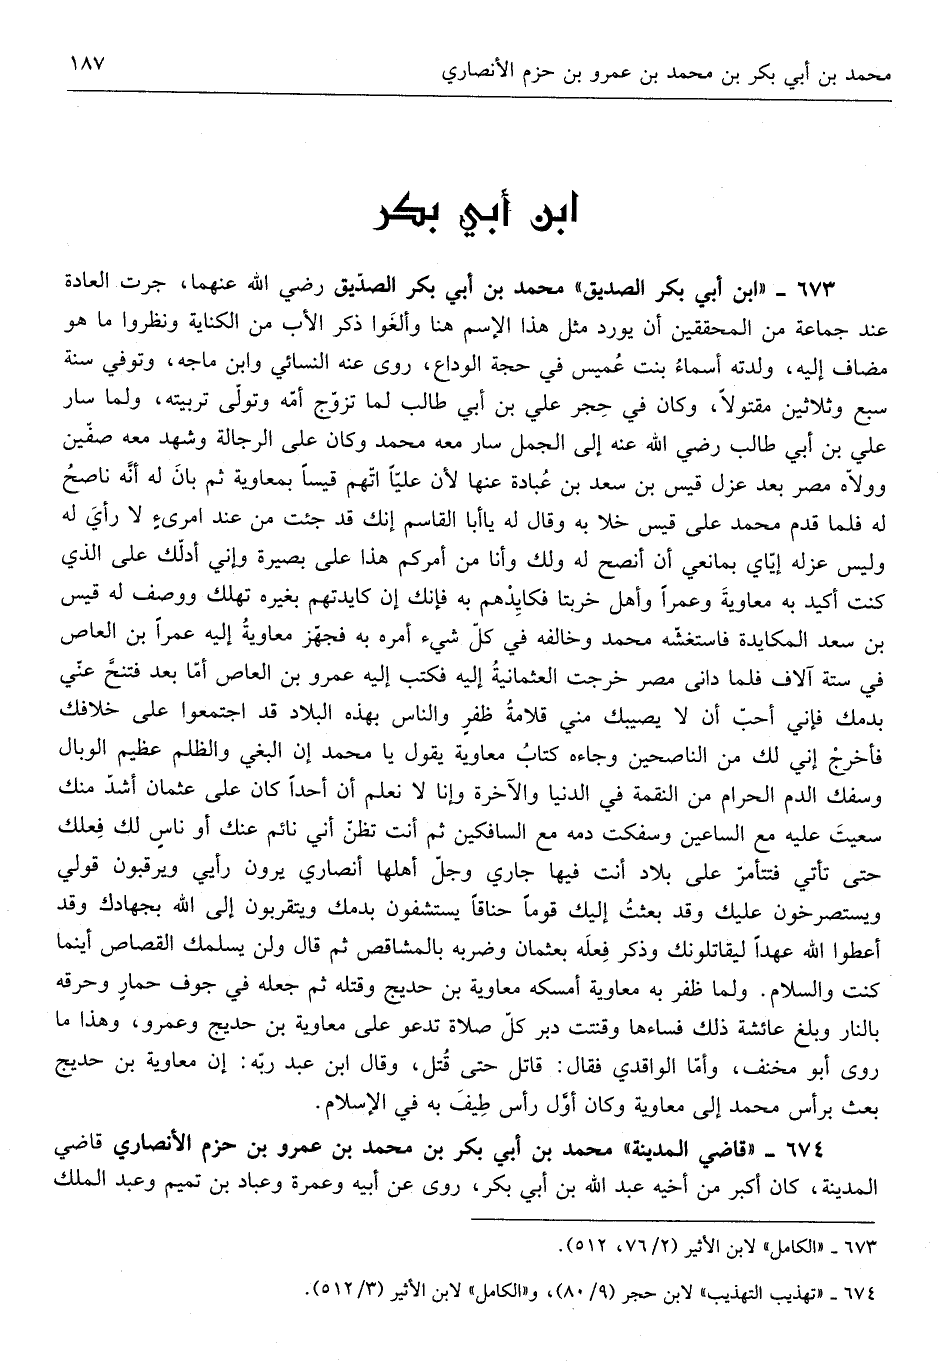 محمد بن أبي بكر بن محمد بن عمرو بن حزم الأنصاري ١٨٧
ابن أبي بكر
٦٧٣ ـ «ابن أبي بكر الصديق» محمد بن أبي بكر الصدّيق رضي الله عنهما، جرت العادة
عند جماعة من المحققين أن يورد مثل هذا الإسم هنا وألغَوا ذكر الأب من الكناية ونظروا ما هو
مضاف إليه، ولدته أسماءُ بنت عُميس في حجة الوداع، روى عنه النسائي وابن ماجه، وتوفي سنة
سبع وثلاثين مقتولاً، وكان في حِجر علي بن أبي طالب لما تزوّج أمّه وتولّى تربيته، ولما سار
علي بن أبي طالب رضي الله عنه إلى الجمل سار معه محمد وكان على الرجالة وشهد معه صفّين
وولاّه مصر بعد عزل قيس بن سعد بن عُبادة عنها لأن عليّاً اتّهم قيساً بمعاوية ثم بانَ له أنَّه ناصحُ
له فلما قدم محمد على قيس خلا به وقال له ياأبا القاسم إنك قد جئت من عند امرىءٍ لا رأيَ له
وليس عزله إيّاي بمانعي أن أنصح له ولك وأنا من أمركم هذا على بصيرة وإني أدلّك على الذي
كنت أكيد به معاويةَ وعمراً وأهل خربتا فكايِدْهم به فإنك إن كايدتهم بغيره تهلك ووصف له قيس
بن سعد المكايدة فاستغشّه محمد وخالفه في كلّ شيء أمره به فجهّز معاويةُ إليه عمراً بن العاص
في ستة آلاف فلما دانى مصر خرجت العثمانيةُ إليه فكتب إليه عمرو بن العاص أمّا بعد فتنحَّ عنّي
بدمك فإني أحبّ أن لا يصيبك مني قلامةُ ظفرٍ والناس بهذه البلاد قد اجتمعوا على خلافك
فأخرجْ إني لك من الناصحين وجاءه كتابُ معاوية يقول يا محمد إن البغي والظلم عظيم الوبال
وسفك الدم الحرام من النقمة في الدنيا والآخرة وإنا لا نعلم أن أحداً كان على عثمان أشدّ منك
سعيتَ عليه مع الساعين وسفكت دمه مع السافكين ثم أنت تظنّ أني نائم عنك أو ناسٍ لك فِعلك
حتى تأتي فتتأمرّ على بلاد أنت فيها جاري وجلّ أهلها أنصاري يرون رأيي ويرقبون قولي
ويستصرخون عليك وقد بعثتُ إليك قوماً حناقاً يستشفون بدمك ويتقربون إلى الله بجهادك وقد
أعطوا الله عهداً ليقاتلونك وذكر فِعلَه بعثمان وضربه بالمشاقص ثم قال ولن يسلمك القصاص أينما
كنت والسلام. ولما ظفر به معاوية أمسكه معاوية بن حديج وقتله ثم جعله في جوف حمارٍ وحرقه
بالنار وبلغ عائشة ذلك فساءها وقنتت دبر كلّ صلاة تدعو على معاوية بن حديج وعمرو، وهذا ما
روى أبو مخنف، وأمّا الواقدي فقال: قاتل حتى قُتل، وقال ابن عبد ربّه: إن معاوية بن حديج
بعث برأس محمد إلى معاوية وكان أوّل رأس طِيفَ به في الإسلام.
٦٧٤ ـ «قاضي المدينة» محمد بن أبي بكر بن محمد بن عمرو بن حزم الأنصاري قاضي
المدينة، كان أكبر من أخيه عبد الله بن أبي بكر، روى عن أبيه وعمرة وعباد بن تميم وعبد الملك
٦٧٣ ـ «الكامل» لابن الأثير (٧٦/٢، ٥١٢).
٦٧٤ ـ «تهذيب التهذيب» لابن حجر (٨٠/٩)، و«الكامل» لابن الأثير (٥١٢/٣).